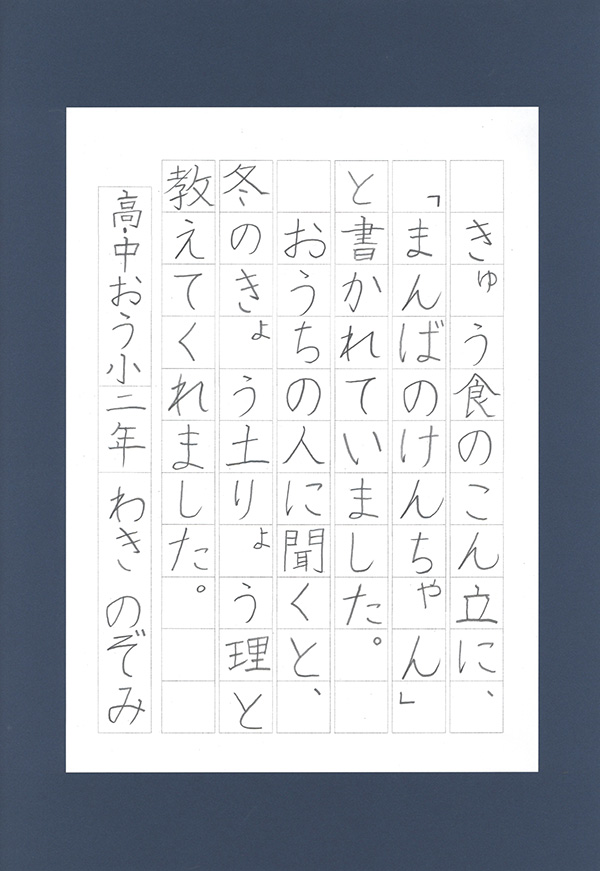 きゅう食のこん立に、
「まんばのけんちゃん」
と書かれていました。
　おうちの人に聞くと、
冬のきょう土りょう理と
教えてくれました。
高・中おう小二年 わき のぞみ